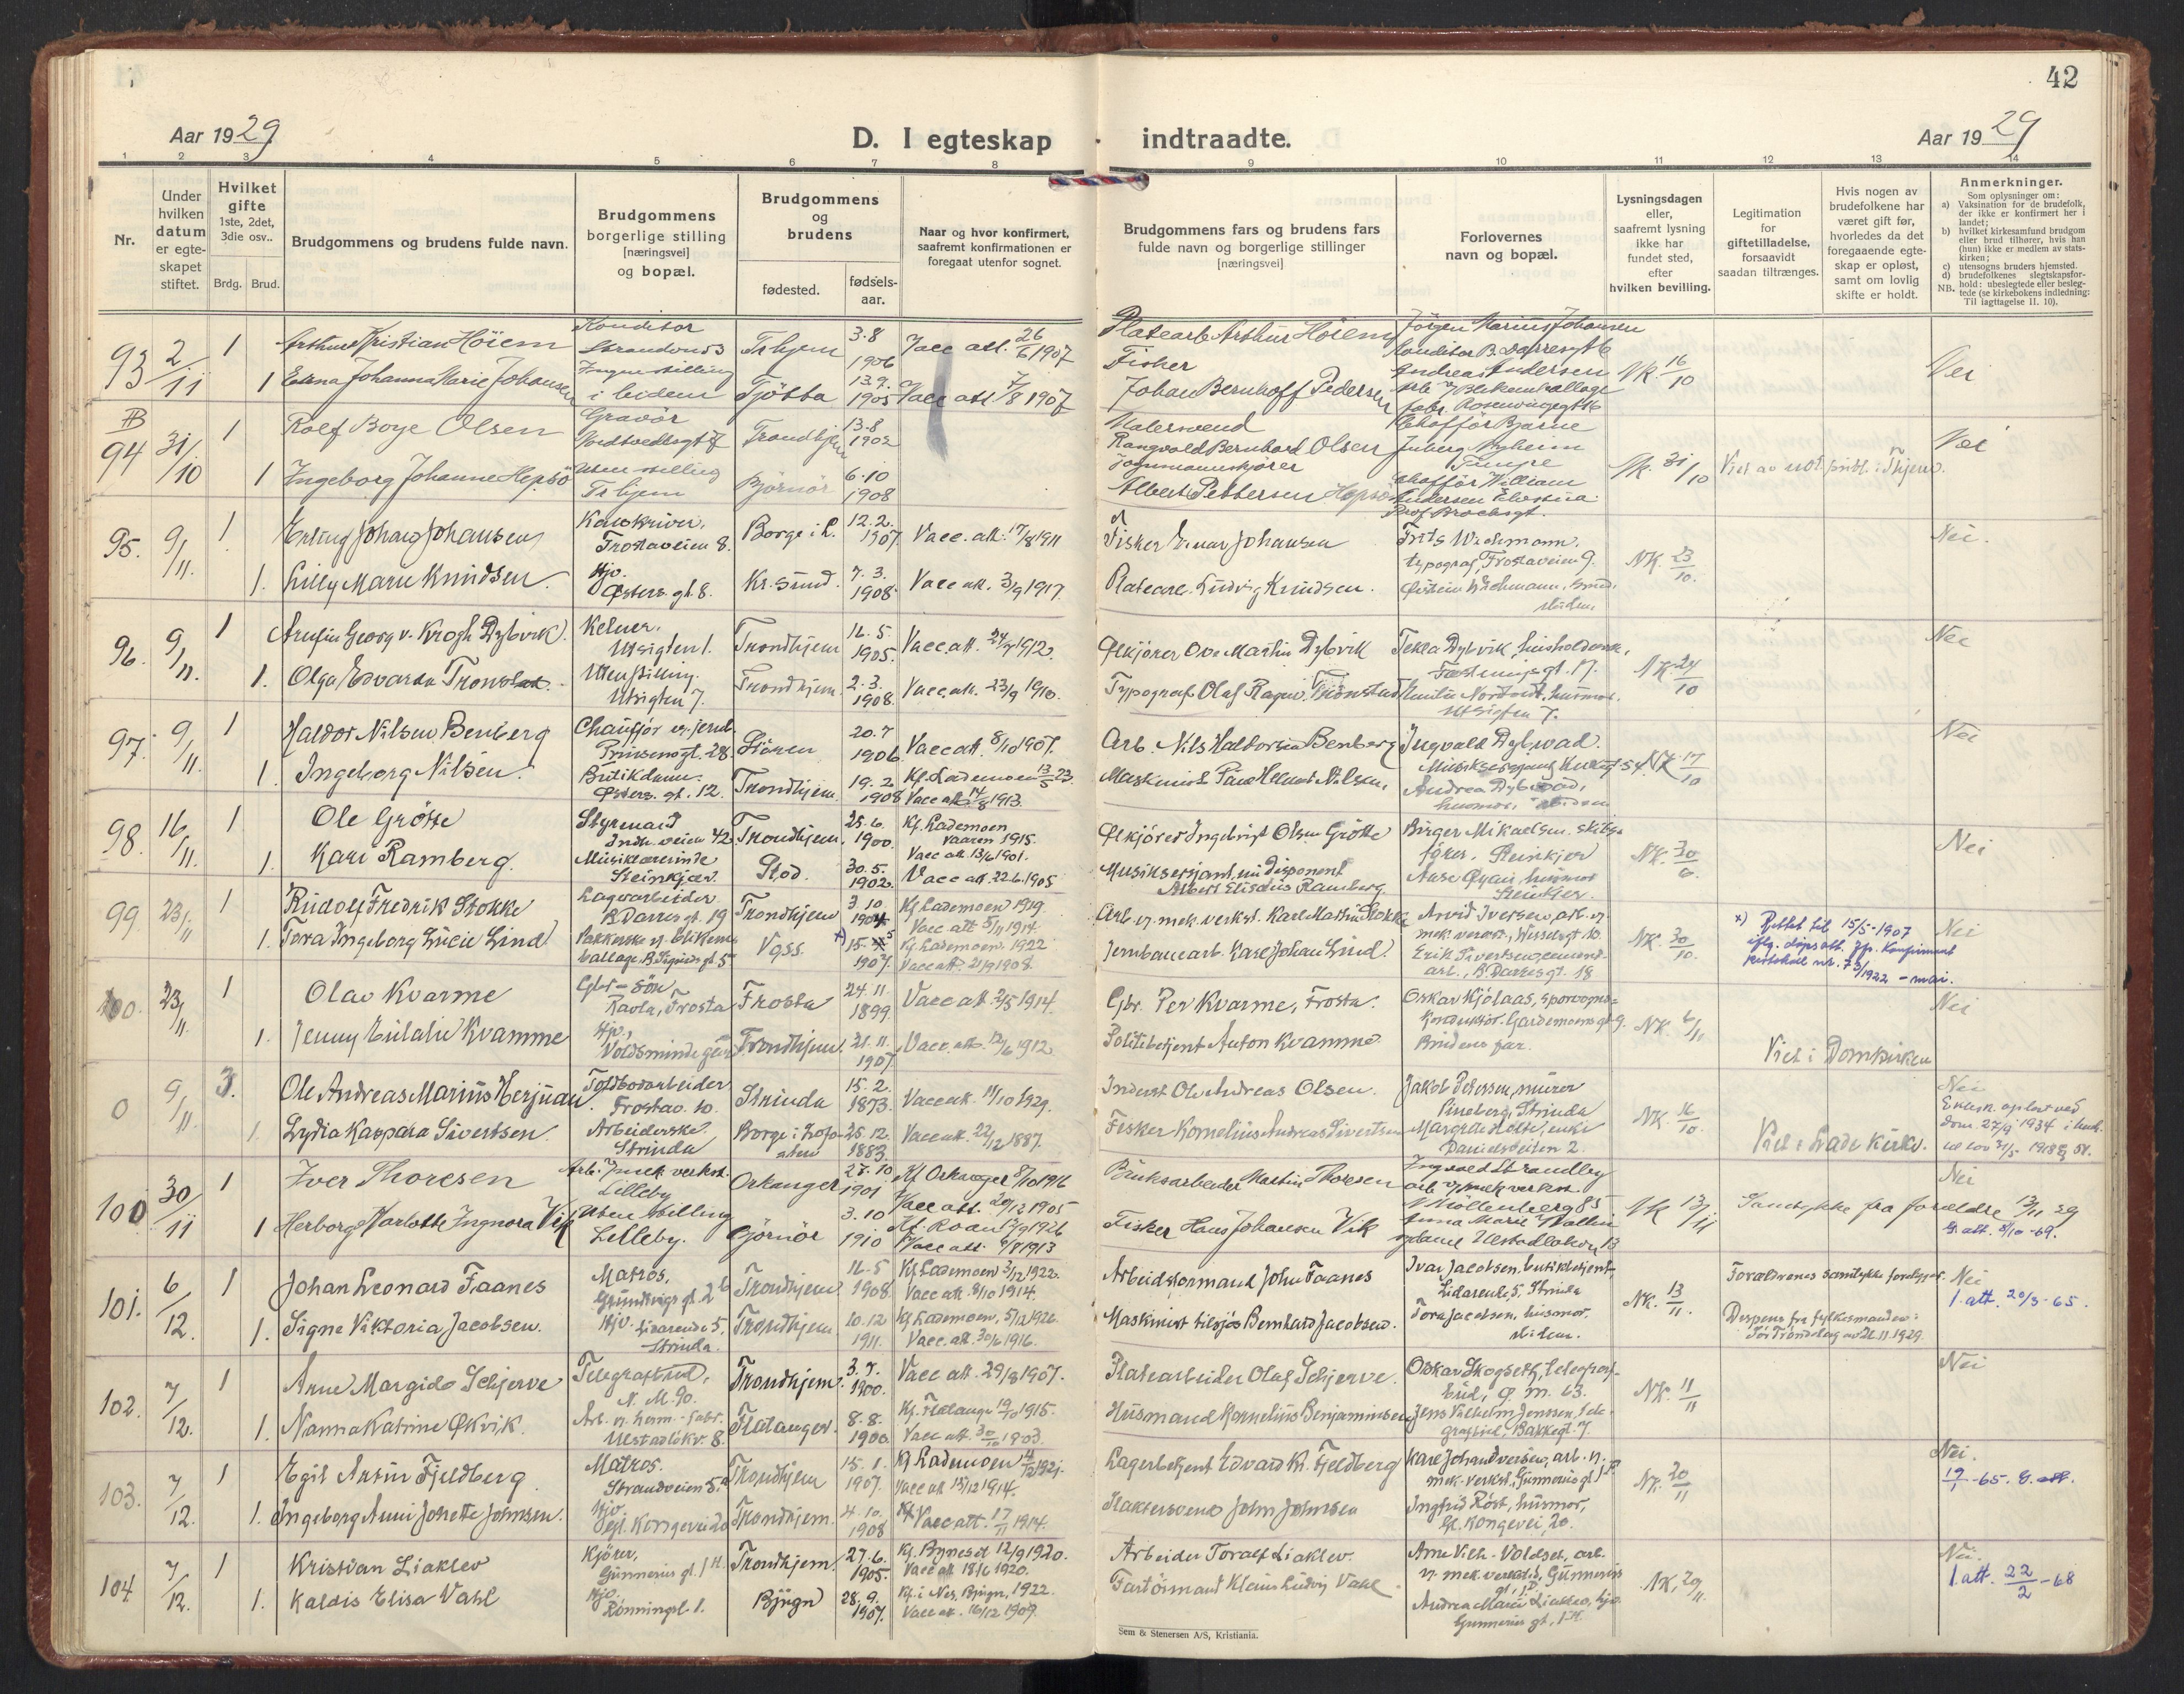 42
Aar 1929
D. I egteskap indtraadte.
Aar 1929
1 2 3 4 5 6 7 8 9 10 11 12 13 14
Nr.
Under hvilken datum er egteskapet stiftet.
Hvilket gifte 1ste, 2det, 3die osv..
Brdg. Brud.
Brudgommens og brudens fulde navn.
Brudgommens borgerlige stilling [næringsvei] og bopæl.
Brudgommens og brudens
fødested.
fødselsaar.
Naar og hvor konfirmert, saafremt konfirmationen er foregaat utenfor sognet.
Brudgommens fars og brudens fars fulde navn og borgerlige stillinger [næringsvei]
Forlovernes navn og bopæl.
Lysningsdagen eller, saafremt lysning ikke har fundet sted, efter hvilken bevilling.
Legitimation for giftetilladelse, forsaavidt saadan tiltrænges.
Hvis nogen av brudefolkene har været gift før, hvorledes da det foregaaende egteskap er opløst, samt om lovlig skifte er holdt.
Anmerkninger.
Som oplysninger om:
a) Vaksination for de brudefolk, der ikke er konfirmert her i landet;
b) hvilket kirkesamfund brudgom eller brud tilhører, hvis han (hun) ikke er medlem av statskirken;
c) utensogns bruders hjemsted.
d) brudefolkenes slegtskapsforhold: ubeslegtede eller beslegtede (se kirkebokens indledning:
NB. Til iagttagelse II. 10).
93 2/11 1 Arthur Kristian Höiem Konditor Strandvei 3 Trhjem 3.8 1906 Vacc att. 26/6 1907 Platearb Arthur Höiem Jörgen Marius Johansen Konditor NK. 16/10 Nei
1 Edna Johanna Marie Johansen Ingen stilling ibidem Tjötta 13.9. 1905 Vacc att 7/8 1907 Fisker Johan Bernhoff Pedersen Andreas Andersen
94 31/10 1 Rolf Boye Olsen Gravör Trondhjem 13.8 1902 Malersvend Rangvald Bernhard Olsen Chafför Bjarne NK. 31/10 Viet av not. publ. i Thjem. Nei
1 Ingeborg Johanne Hepsö Uten stilling Trhjem Björnör 6.10 1908 Albert Pettersen Hepsö Chafför William Andersen
95. 9/11. 1 Erling Johan Johansen Frostaveien 8. Borge i L. 12.2. 1907. Vacc. att. 17/8 1911 Fisker Einar Johansen Frits Wichmann, typograf, Frostaveien 9. NK. 23/10. Nei.
1. Lilly Marie Knudsen. Hjv. Østers. gt. 8. Kr. sund. 7. 3. 1908 Vacc att. 3/9 1917. Platearb. Ludvig Knudsen.
96. 9/11. 1 Arnfin Georg v. Krogh Dybvik. Kelner. Utsigten 1. Trondhjem 16. 5. 1905. Vacc. att. 24/7 1912. Ølkjörer Ove Martin Dybvik Tekla Dybvik NK. 24/10 Nei
1. Olga Edvarda Tronstad. Uten stilling. Utsigten 7. Trondhjem. 2. 3. 1908. Vacc. att. 23/9 1910. Typograf Olaf Ragnv. Trönstad Utsigten 7.
97. 9/11. 1 Haldor Nilsen Benberg Chauffør Prinsensgt. 28. Stören 20. 7 1906 Vacc att 8/10 1907. Arb. Nils Haldorsen Benberg Ingvald Dybwad. NK. 17/10 Nei
1. Ingeborg Nilsen. Butikdame. Østers. gt. 12. Trondhjem 19. 2 1908 Kf. Lademoen 13/5 23. Vacc att. 14/8 1913. Andrea Dybwad, husmor, ibidem
98. 16/11. 1 Ole Grötte Styrmand Indh. veien 42 Trondhjem. 25. 6. 1900. Kf. Lademoen vaaren 1915. Vacc att. 13/6 1901. Ølkjörer Ingebrigt Olsen Grötte Birger Mikaelsen, Steinkjer NK. 30/6. Nei
1. Kari Ramberg. Musiklærerinde Steinkjer. Stod. 30. 5. 1902. Vacc att. 22.6.1905 Musiksersjant, nu disponent Albert Elisæus Ramberg. Aase Øyan, husmor Steinkjer.
99 23/11 1 Rudolf Fredrik Stokke Lagerarbeider B. Darres gt. 19 Trondhjem 3 10 1904 Kf. Lademoen 1919. Vacc. att 5/11 1914. Arb. v. mek. verkst. Karl Martin Stokke Arvid Iversen, arb. v. mek. verkst., Wessels gt. 10. NK. 30/10. x) Rettet til 15/5-1907 Nei
1. Tora Ingeborg Lucie Lind Voss. 15. 1907. Kf. Lademoen 1922 Vacc att. 21/9 1908. Jernbanearb. Karl Johan Lind. B. Darres gt. 18 iflg. dåpsatt. Jfr. Konfirmant protokoll nr. 73/1922 - mai.
100. 23/11. 1 Olav Kvarme Gbr-sön, Ravla, Frosta Frosta 24 11 1899 Vacc att. 2/5 1914. Gbr. Per Kvarme, Frosta. Oskar Kjölaas, sporvognskonduktør. NK. 6/11 Nei
1. Jenny Eulalie Kvamme Hjv. Trondhjem. 21. 11. 1907 Vacc. att. 12/6 1912 Politibetjent Anton Kvamme Brudens far. Viet i Domkirken
0 9/11. 3. Ole Andreas Marius Herjuan Toldbodarbeider Frostav. 10. Strinda 15. 2. 1873. Vacc att. 11/10 1929. Inderst Ole Andreas Olsen. Jakob Petersen, murer Strinda NK. 16/10. Nei
1. Lydia Kaspara Sivertsen Arbeiderske. Strinda Borge i Lofoten 25. 12. 1883. Vacc att. 22/12 1887. Fisker Kornelius Andreas Sivertsen Margrete Holte, enke Viet i Lade kirke. Ektesk. oplöst ved dom. 27/9 1934
100 30/11 1 Iver Thoresen Arb. v/mek verkst. Lilleby Orkanger 27. 10 1901 Kf Orkanger 8/10 1916 Vacc att. 20/12 1905 Bruksarbeider Martin Thoresen Ingvald Strandby arb v/mek verkst. Möllenberg 85 NK 13/11 Samtykke fra foreldre 13/11 29 Nei
1 Herborg Charlotte Ingnora Vik Uten stilling Lilleby. Björnör 3. 10 1910 Kf. Roan 1926 Vacc att. 1913 Fisker Hans Johansen Vik Anna Marie Wallin G. att. 8/10-69.
101. 6/12. 1 Johan Leonard Faanes Matros, Grundtvigs gt. 2b Trondhjem 16. 5 1908. Kf Lademoen 3/12 1922. Vacc att. 8/10 1914. Arbeidsformand John Faanes Ivar Jacobsen, butikbetjent, Lidarende 5, Strinda NK. 13/11. Forældrenes samtykke foreligger. Nei
1. Signe Viktoria Jacobsen. Hjv. Lidarende 5, Strinda. Trondhjem 10. 12 1911. Kf Lademoen, 5/12 1926 Vacc. att. 30/6 1916. Maskinist tilsjös Bernhard Jacobsen. Tora Jacobsen, husmor, ibidem. Dispens fra fylkesmanden i Sör Tröndelag av 26.11.1929. 1. att. 20/3-65.
102. 7/12. 1 Arne Margido Schjerve Telegrafbud, N. M. 90. Trondhjem. 3. 7. 1900. Vacc att. 29/8 1907. Platearbeider Olaf Schjerve. Oskar Skogseth, telegrafbud, Ø. M. 63. NK. 11/11 Nei
1. Nanna Katrine Økvik. Arb. v. herm.-fabr. Ulstadlökv. 8. Flatanger. 8. 8. 1900 Kf. Flatanger 1915. Vacc att. 30/10 1903. Husmand Kornelius Benjaminsen Jens Vilhelm Jenssen, Bakkegt. 7.
103. 7/12. 1 Egil Artur Fjeldberg Matros. Strandveien 5a Trondhjem 15. 1. 1907. Kf Lademoen 1921. Vacc att 15/12 1914. Lagerbetjent Edvard Kr. Fjeldberg Karl Johan Iversen, arb. v. mek. verkst., Gunnerus gt. NK. 20/11 Nei.
1. Ingeborg Anni Jonette Johnsen. Hjv. Gl. Kongevei 20 Trondhjem. 4. 10. 1908 Vacc att. 17/11 1914. Slaktersvend John Johnsen Ingfrid Röst, husmor, Gl. Kongevei, 20. 19/1-65. G. att.
104 7/12. 1 Kristian Liaklev Kjörer, Gunnerus gt. 1 H. Trondhjem. 27. 6. 1905. Kf. Bynesset 12/9 1920. Vacc att 18/6 1920. Arbeider Toralf Liaklev. Arne Vilh. Voldset, arb. v. mek. verksted, Gunnerus gt. NK, 20/11. Nei.
1. Kaldis Elisa Vahl Hjv. Rönningsl. 1. Bjugn 28. 9. 1907. Kf. i Nes, Bjugn, 1922. Vacc att. 16/12 1909. Klaus Ludvig Vahl Andrea Marie Liaklev, hjv. Gunnerus gt. 1 H. 1. att. 22/2-68
Sem & Stenersen A/S, Kristiania.